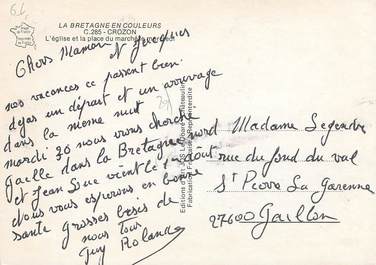 LA BRETAGNE EN COULEURS
C.285 - CROZON
L'église et la place du marché
Chers Maman et Jacques
nos vacances ce passent bien.
dejas un départ et un arrivage
dans la meme nuit
mardi 30 nous vous cherche
Gaelle dans la Bretagne nord
et Jean Luc vient le 1 août
Nous vous esperons en bonne
sante grosses bises de
nous tous
Guy Rolande
Madame Legendre
rue du fond du val
St Pierre La Garenne
27600 Gaillon